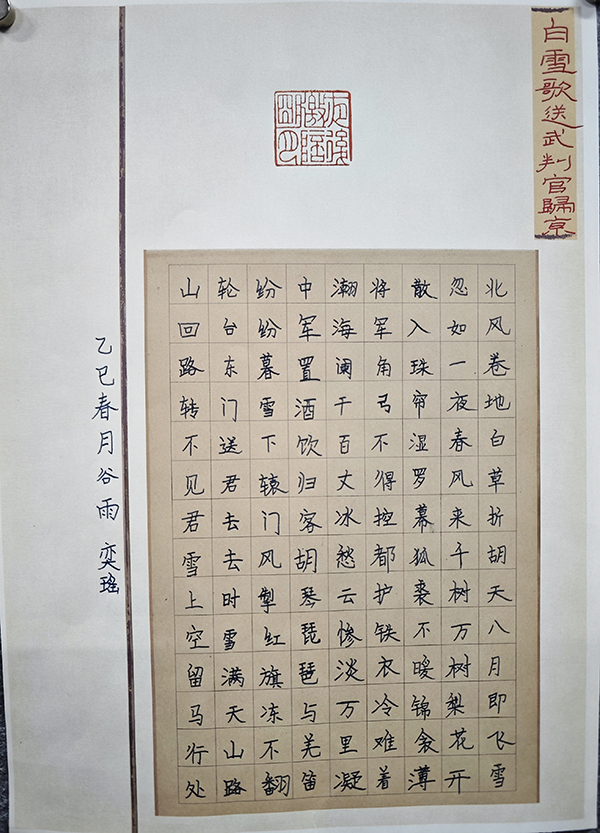 白雪歌送武判官歸京
北风卷地白草折胡天八月即飞雪
忽如一夜春风来千树万树梨花开
散入珠帘湿罗幕狐裘不暖锦衾薄
将军角弓不得控都护铁衣冷难着
瀚海阑干百丈冰愁云惨淡万里凝
中军置酒饮归客胡琴琵琶与羌笛
纷纷暮雪下辕门风掣红旗冻不翻
轮台东门送君去去时雪满天山路
山回路转不见君雪上空留马行处
乙巳春月谷雨 奕瑶